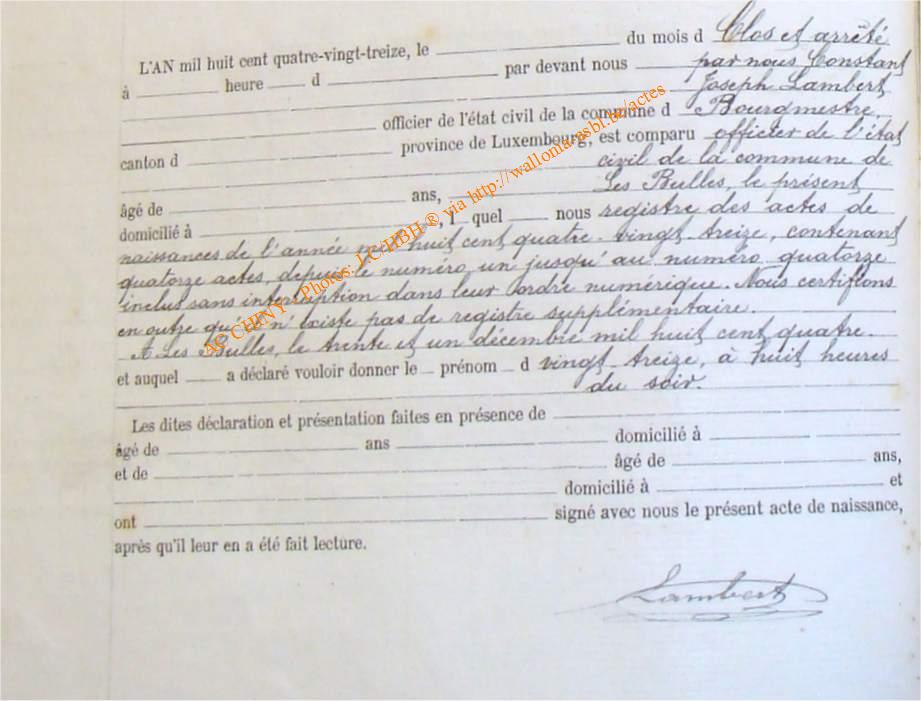 L'AN mil huit cent quatre-vingt-treize, le du mois d Clos et arrêté
à heure d par devant nous par nous Constant
Joseph Lambert
officier de l'état civil de la commune d Bourgmestre,
canton d province de Luxembourg, est comparu officier de l'état
civil de la commune de
Les Bulles, le présent
âgé de ans,
domicilié à , l quel nous registre des actes de
naissances de l'année mil huit cent quatre-vingt-treize, contenant
quatorze actes, depuis le numéro un jusqu'au numéro quatorze
inclus sans interruption dans leur ordre numérique. Nous certifions
en outre qu'il n'existe pas de registre supplémentaire.
A Les Bulles, le trente et un décembre mil huit cent quatre-
et auquel a déclaré vouloir donner le prénom d vingt-treize, à huit heures
du soir.
Les dites déclaration et présentation faites en présence de
âgé de ans domicilié à
et de âgé de ans,
domicilié à et
ont signé avec nous le présent acte de naissance,
après qu'il leur en a été fait lecture.
Lambert
Ac CHINY - Photos J.C.HBH ® via http://wallonia-asbl.be/actes